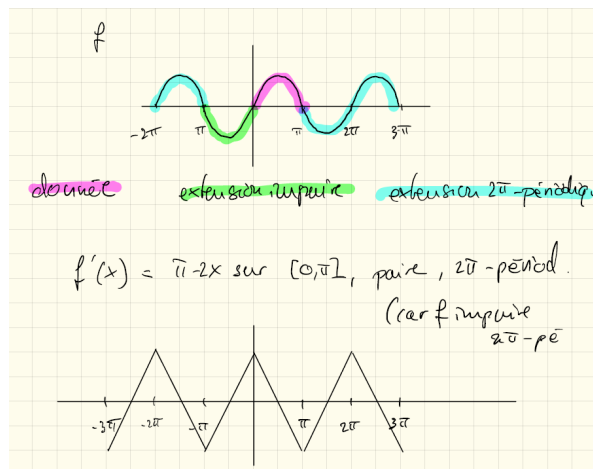 f
-2π π π 2π 3π
donnée extension impaire extension 2π-périodiqu
f'(x) = π-2x sur [0,π], paire, 2π-périod.
(car f impaire
2π-pé
-3π -2π -π π 2π 3π